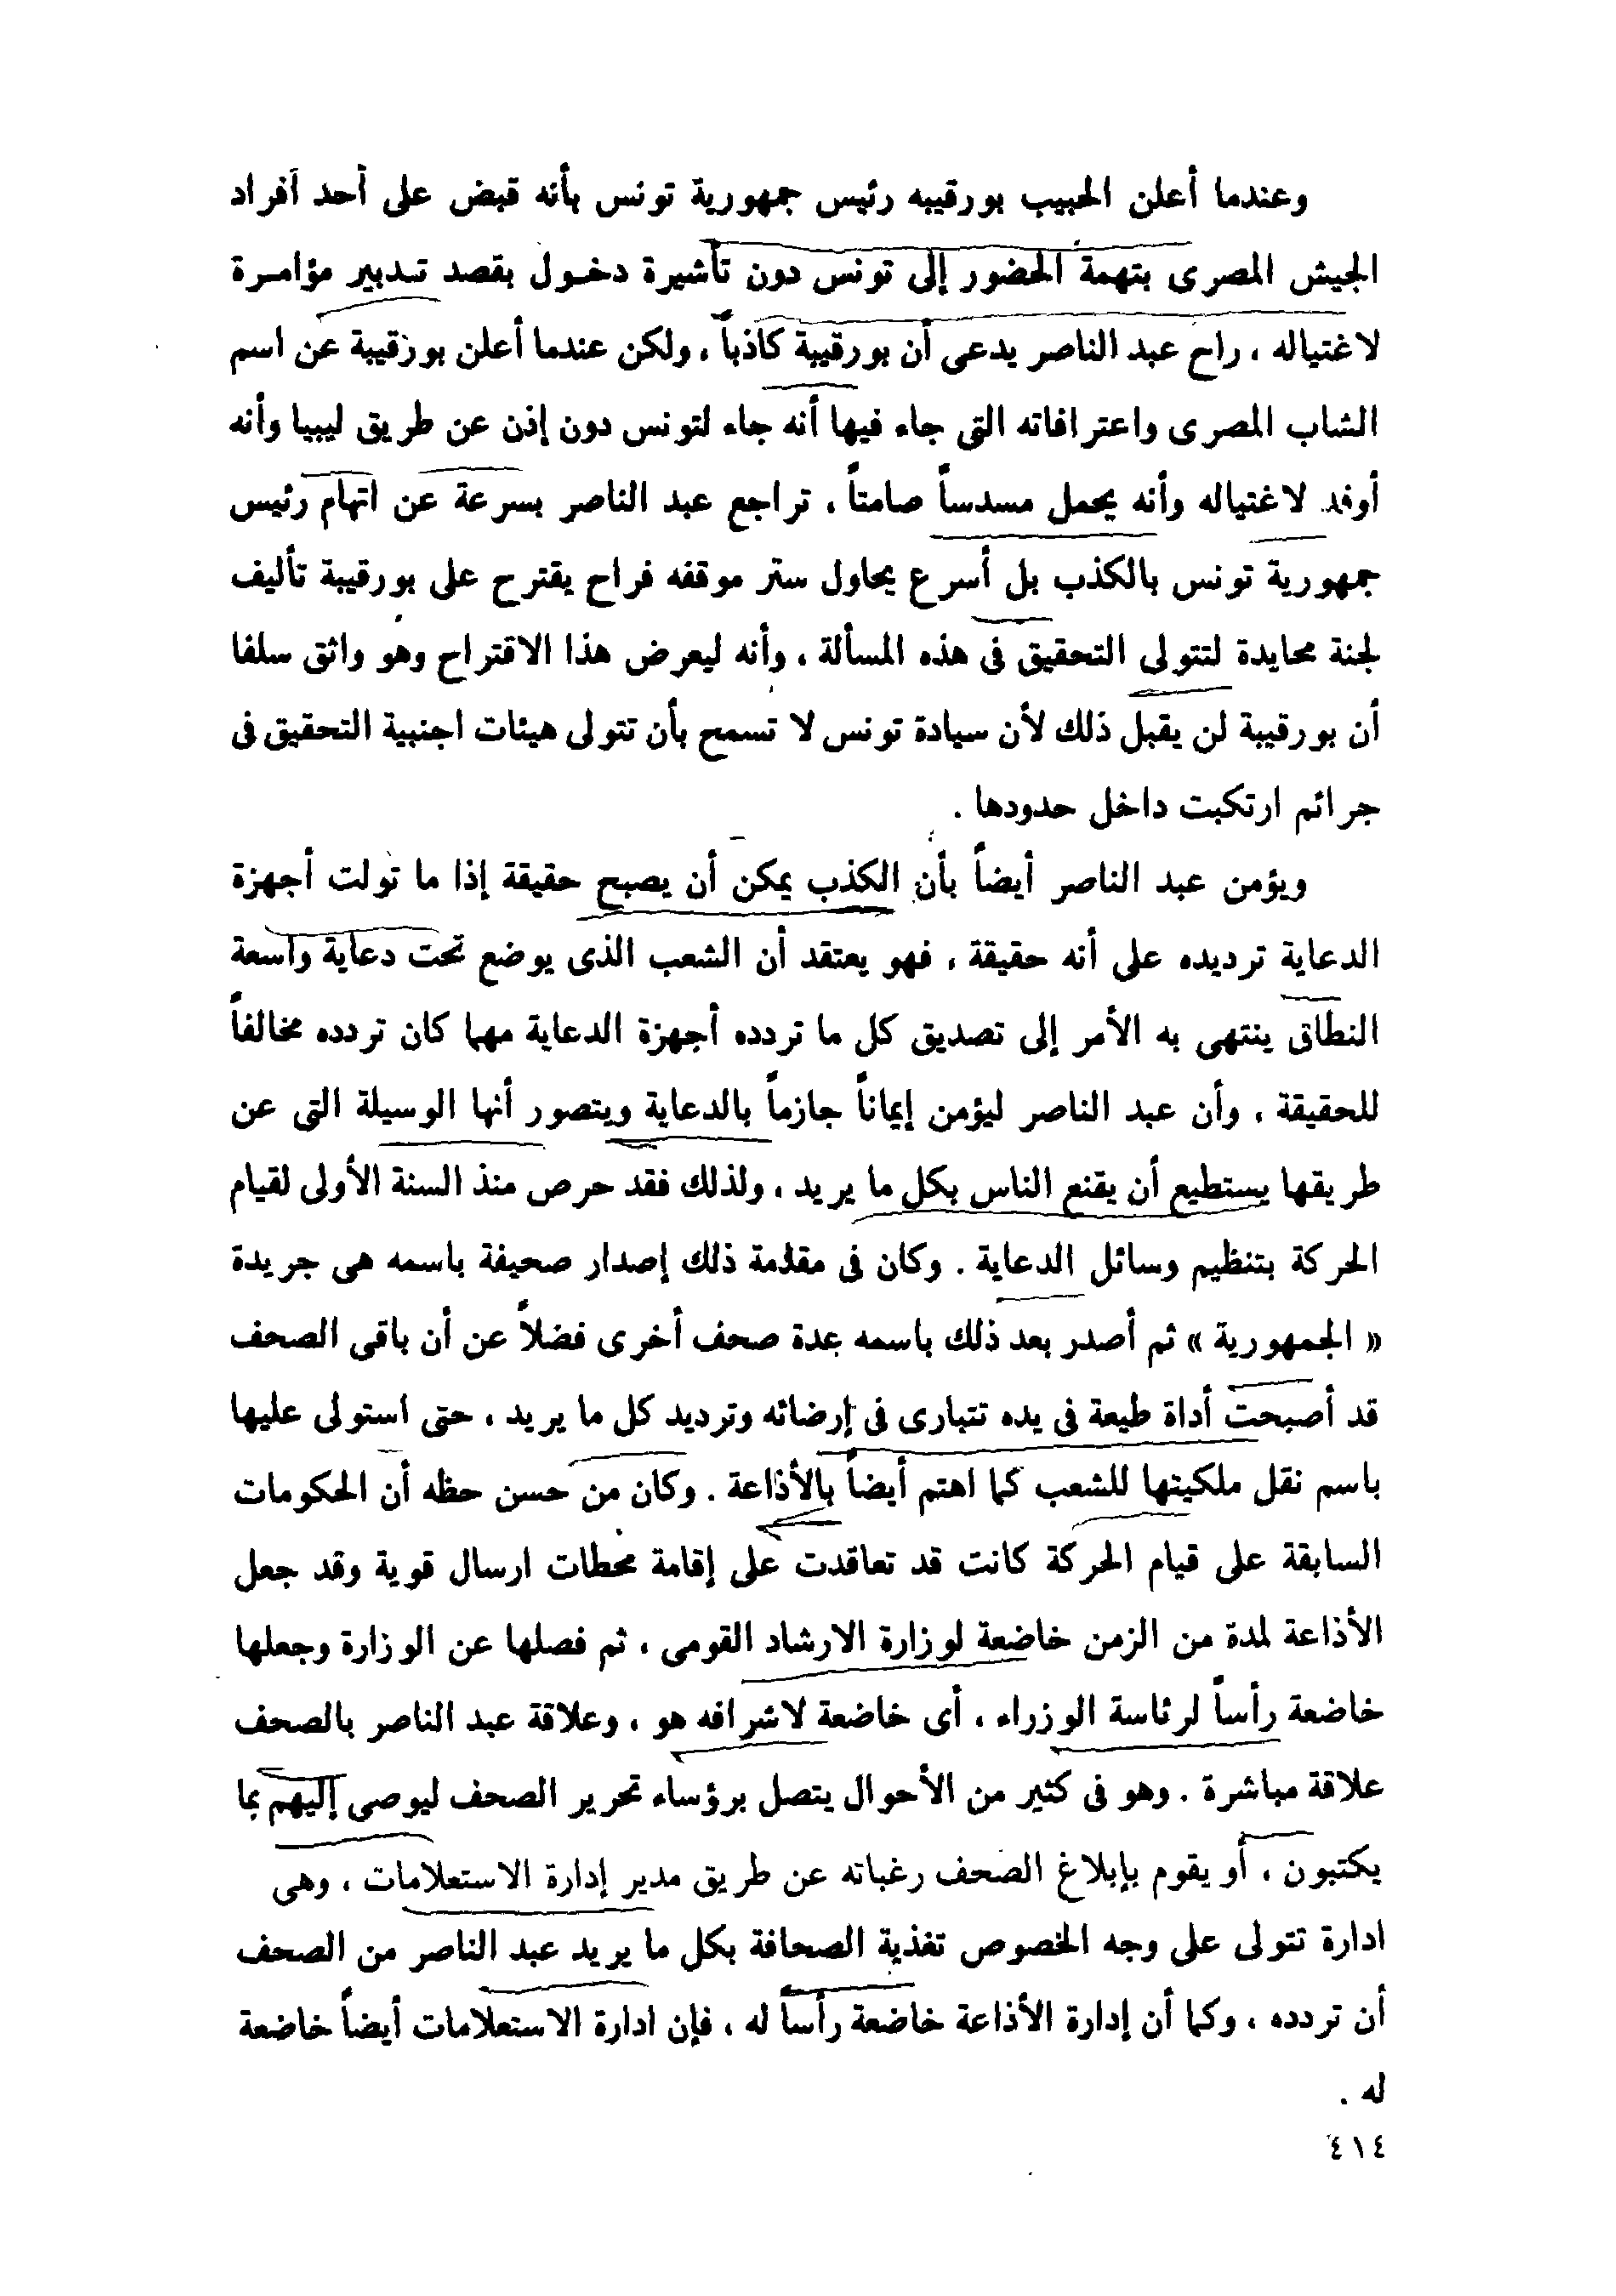 وعندما أعلن الحبيب بورقيبه رئيس جمهورية تونس بأنه قبض على أحد أفراد
الجيش المصرى بتهمة الحضور إلى تونس دون تأشيرة دخول بقصد تدبير مؤامرة
لاغتياله ، راح عبد الناصر يدعى أن بورقيبة كاذباً ، ولكن عندما أعلن بورقيبة عن اسم
الشاب المصرى واعترافاته التى جاء فيها أنه جاء لتونس دون إذن عن طريق ليبيا وأنه
أوفد لاغتياله وأنه يحمل مسدساً صامتاً ، تراجع عبد الناصر بسرعة عن اتهام رئيس
جمهورية تونس بالكذب بل أسرع يحاول ستر موقفه فراح يقترح على بورقيبة تأليف
لجنة محايدة لتتولى التحقيق فى هذه المسألة ، وأنه ليعرض هذا الاقتراح وهو واثق سلفا
أن بورقيبة لن يقبل ذلك لأن سيادة تونس لا تسمح بأن تتولى هيئات اجنبية التحقيق فى
جرائم ارتكبت داخل حدودها .
ويؤمن عبد الناصر أيضاً بأن الكذب يمكن أن يصبح حقيقة إذا ما تولت أجهزة
الدعاية ترديده على أنه حقيقة ، فهو يعتقد أن الشعب الذى يوضع تحت دعاية واسعة
النطاق ينتهى به الأمر إلى تصديق كل ما تردده أجهزة الدعاية مهما كان تردده مخالفاً
للحقيقة ، وأن عبد الناصر ليؤمن إيماناً جازماً بالدعاية ويتصور أنها الوسيلة التى عن
طريقها يستطيع أن يقنع الناس بكل ما يريد ، ولذلك فقد حرص منذ السنة الأولى لقيام
الحركة بتنظيم وسائل الدعاية . وكان فى مقدمة ذلك إصدار صحيفة باسمه هى جريدة
« الجمهورية » ثم أصدر بعد ذلك باسمه عدة صحف أخرى فضلاً عن أن باقى الصحف
قد أصبحت أداة طيعة فى يده تتبارى فى إرضائه وترديد كل ما يريد ، حتى استولى عليها
باسم نقل ملكيتها للشعب كما اهتم أيضاً بالأذاعة . وكان من حسن حظه أن الحكومات
السابقة على قيام الحركة كانت قد تعاقدت على إقامة محطات ارسال قوية وقد جعل
الأذاعة لمدة من الزمن خاضعة لوزارة الارشاد القومى ، ثم فصلها عن الوزارة وجعلها
خاضعة رأساً لرئاسة الوزراء ، أى خاضعة لاشرافه هو ، وعلاقة عبد الناصر بالصحف
علاقة مباشرة . وهو فى كثير من الأحوال يتصل برؤساء تحرير الصحف ليوصى إليهم بما
يكتبون ، أو يقوم بإبلاغ الصحف رغباته عن طريق مدير إدارة الاستعلامات ، وهى
ادارة تتولى على وجه الخصوص تغذية الصحافة بكل ما يريد عبد الناصر من الصحف
أن تردده ، وكما أن إدارة الأذاعة خاضعة رأساً له ، فإن ادارة الاستعلامات أيضاً خاضعة
له .
٤١٤